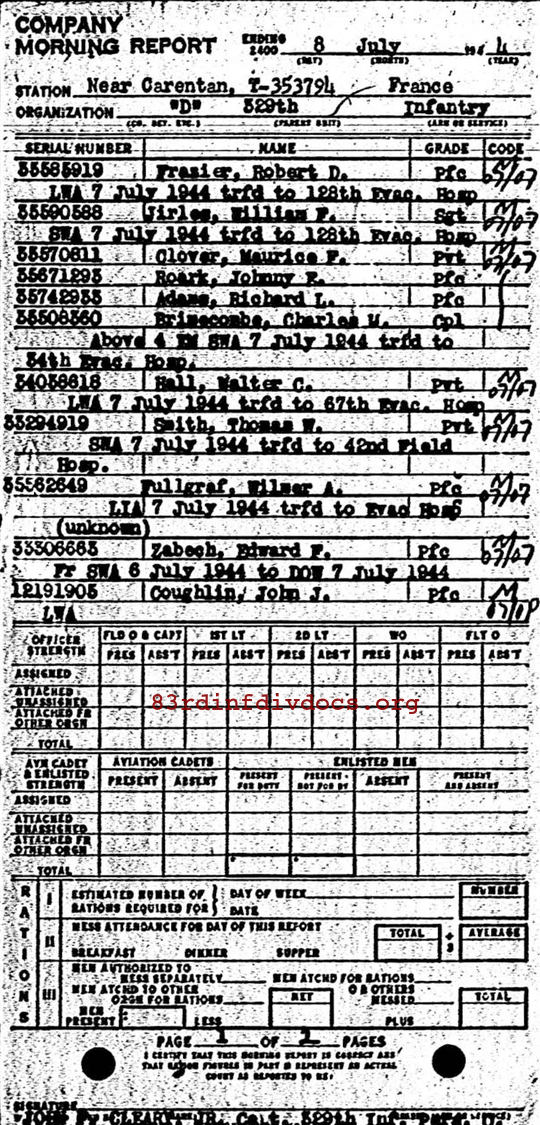 COMPANY
MORNING REPORT ENDING 2400 8 July 194 4
(DAY) (MONTH) (YEAR)
STATION Near Carentan, T-353794 France
ORGANIZATION "D" 329th Infantry
(CO. DET. ETC.) (PARENT UNIT) (ARM OR SERVICE)
SERIAL NUMBER NAME GRADE CODE
35585919 Frazier, Robert D. Pfc M 07/07
LWA 7 July 1944 trfd to 128th Evac. Hosp
35590588 Jirles, William F. Sgt M 07/07
SWA 7 July 1944 trfd to 128th Evac. Hosp
35570611 Clover, Maurice F. Pvt M 07/07
35671293 Roark, Johnny E. Pfc
35742933 Adams, Richard L. Pfc
35508360 Brimecombe, Charles M. Cpl
Above 4 EM SWA 7 July 1944 trfd to
34th Evac. Hosp.
34038618 Hall, Walter C. Pvt M 07/07
LWA 7 July 1944 trfd to 67th Evac. Hosp
33294919 Smith, Thomas W. Pvt M 07/07
SWA 7 July 1944 trfd to 42nd Field
Hosp.
35562649 Fullgraf, Wilmer A. Pfc M 07/07
LIA 7 July 1944 trfd to Evac Hosp
(unknown)
33306663 Zabech, Edward F. Pfc M 07/07
Fr SWA 6 July 1944 to DOW 7 July 1944
12191905 Coughlin, John J. Pfc M 07/08
LWA
OFFICER STRENGTH FLD O & CAPT 1ST LT 2D LT WO FLT O
PRES ABS'T PRES ABS'T PRES ABS'T PRES ABS'T PRES ABS'T
ASSIGNED
ATTACHED UNASSIGNED
ATTACHED FR OTHER ORGN
TOTAL
83rdinfdivdocs.org
AVN CADET & ENLISTED STRENGTH AVIATION CADETS ENLISTED MEN
PRESENT ABSENT PRESENT FOR DUTY PRESENT NOT FOR DY ABSENT PRESENT AND ABSENT
ASSIGNED
ATTACHED UNASSIGNED
ATTACHED FR OTHER ORGN
TOTAL
RATIONS
I ESTIMATED NUMBER OF RATIONS REQUIRED FOR DAY OF WEEK NUMBER
DATE
II MESS ATTENDANCE FOR DAY OF THIS REPORT TOTAL ÷ 3 AVERAGE
BREAKFAST DINNER SUPPER
III MEN AUTHORIZED TO MESS SEPARATELY MEN ATCHD FOR RATIONS
MEN ATCHD TO OTHER ORGN FOR RATIONS NET O & OTHERS MESSED TOTAL
MEN PRESENT LESS PLUS
PAGE 1 OF 2 PAGES
I CERTIFY THAT THIS MORNING REPORT IS CORRECT AND
THAT RATION FIGURES IN PART III REPRESENT AN ACTUAL
COUNT AS REPORTED TO ME:
SIGNATURE
JOHN F. CLEARY, JR. Capt. 329th Inf.